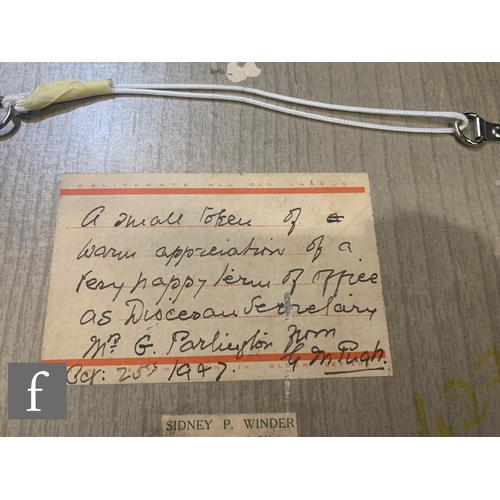 OBLITERATE ALL OLD LABELS
A small Token of a
warm appreciation of a
very happy term of office
as Diocesan Secretary
Mrs G. Parlington from
Oct. 25th 1947. G M Pugh.
IN BLOCK LETTERS
f
SIDNEY P. WINDER